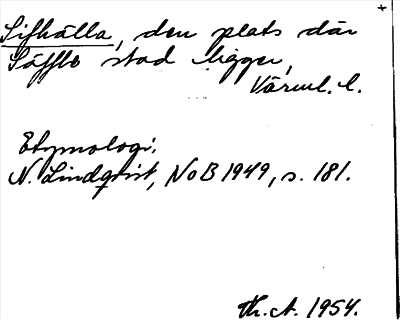 +
Sifhälla, den plats där
Säffle stad ligger,
Värml. l.
Etymologi.
N. Lindqvist, NoB 1949, s. 181.
Th. A. 1954.